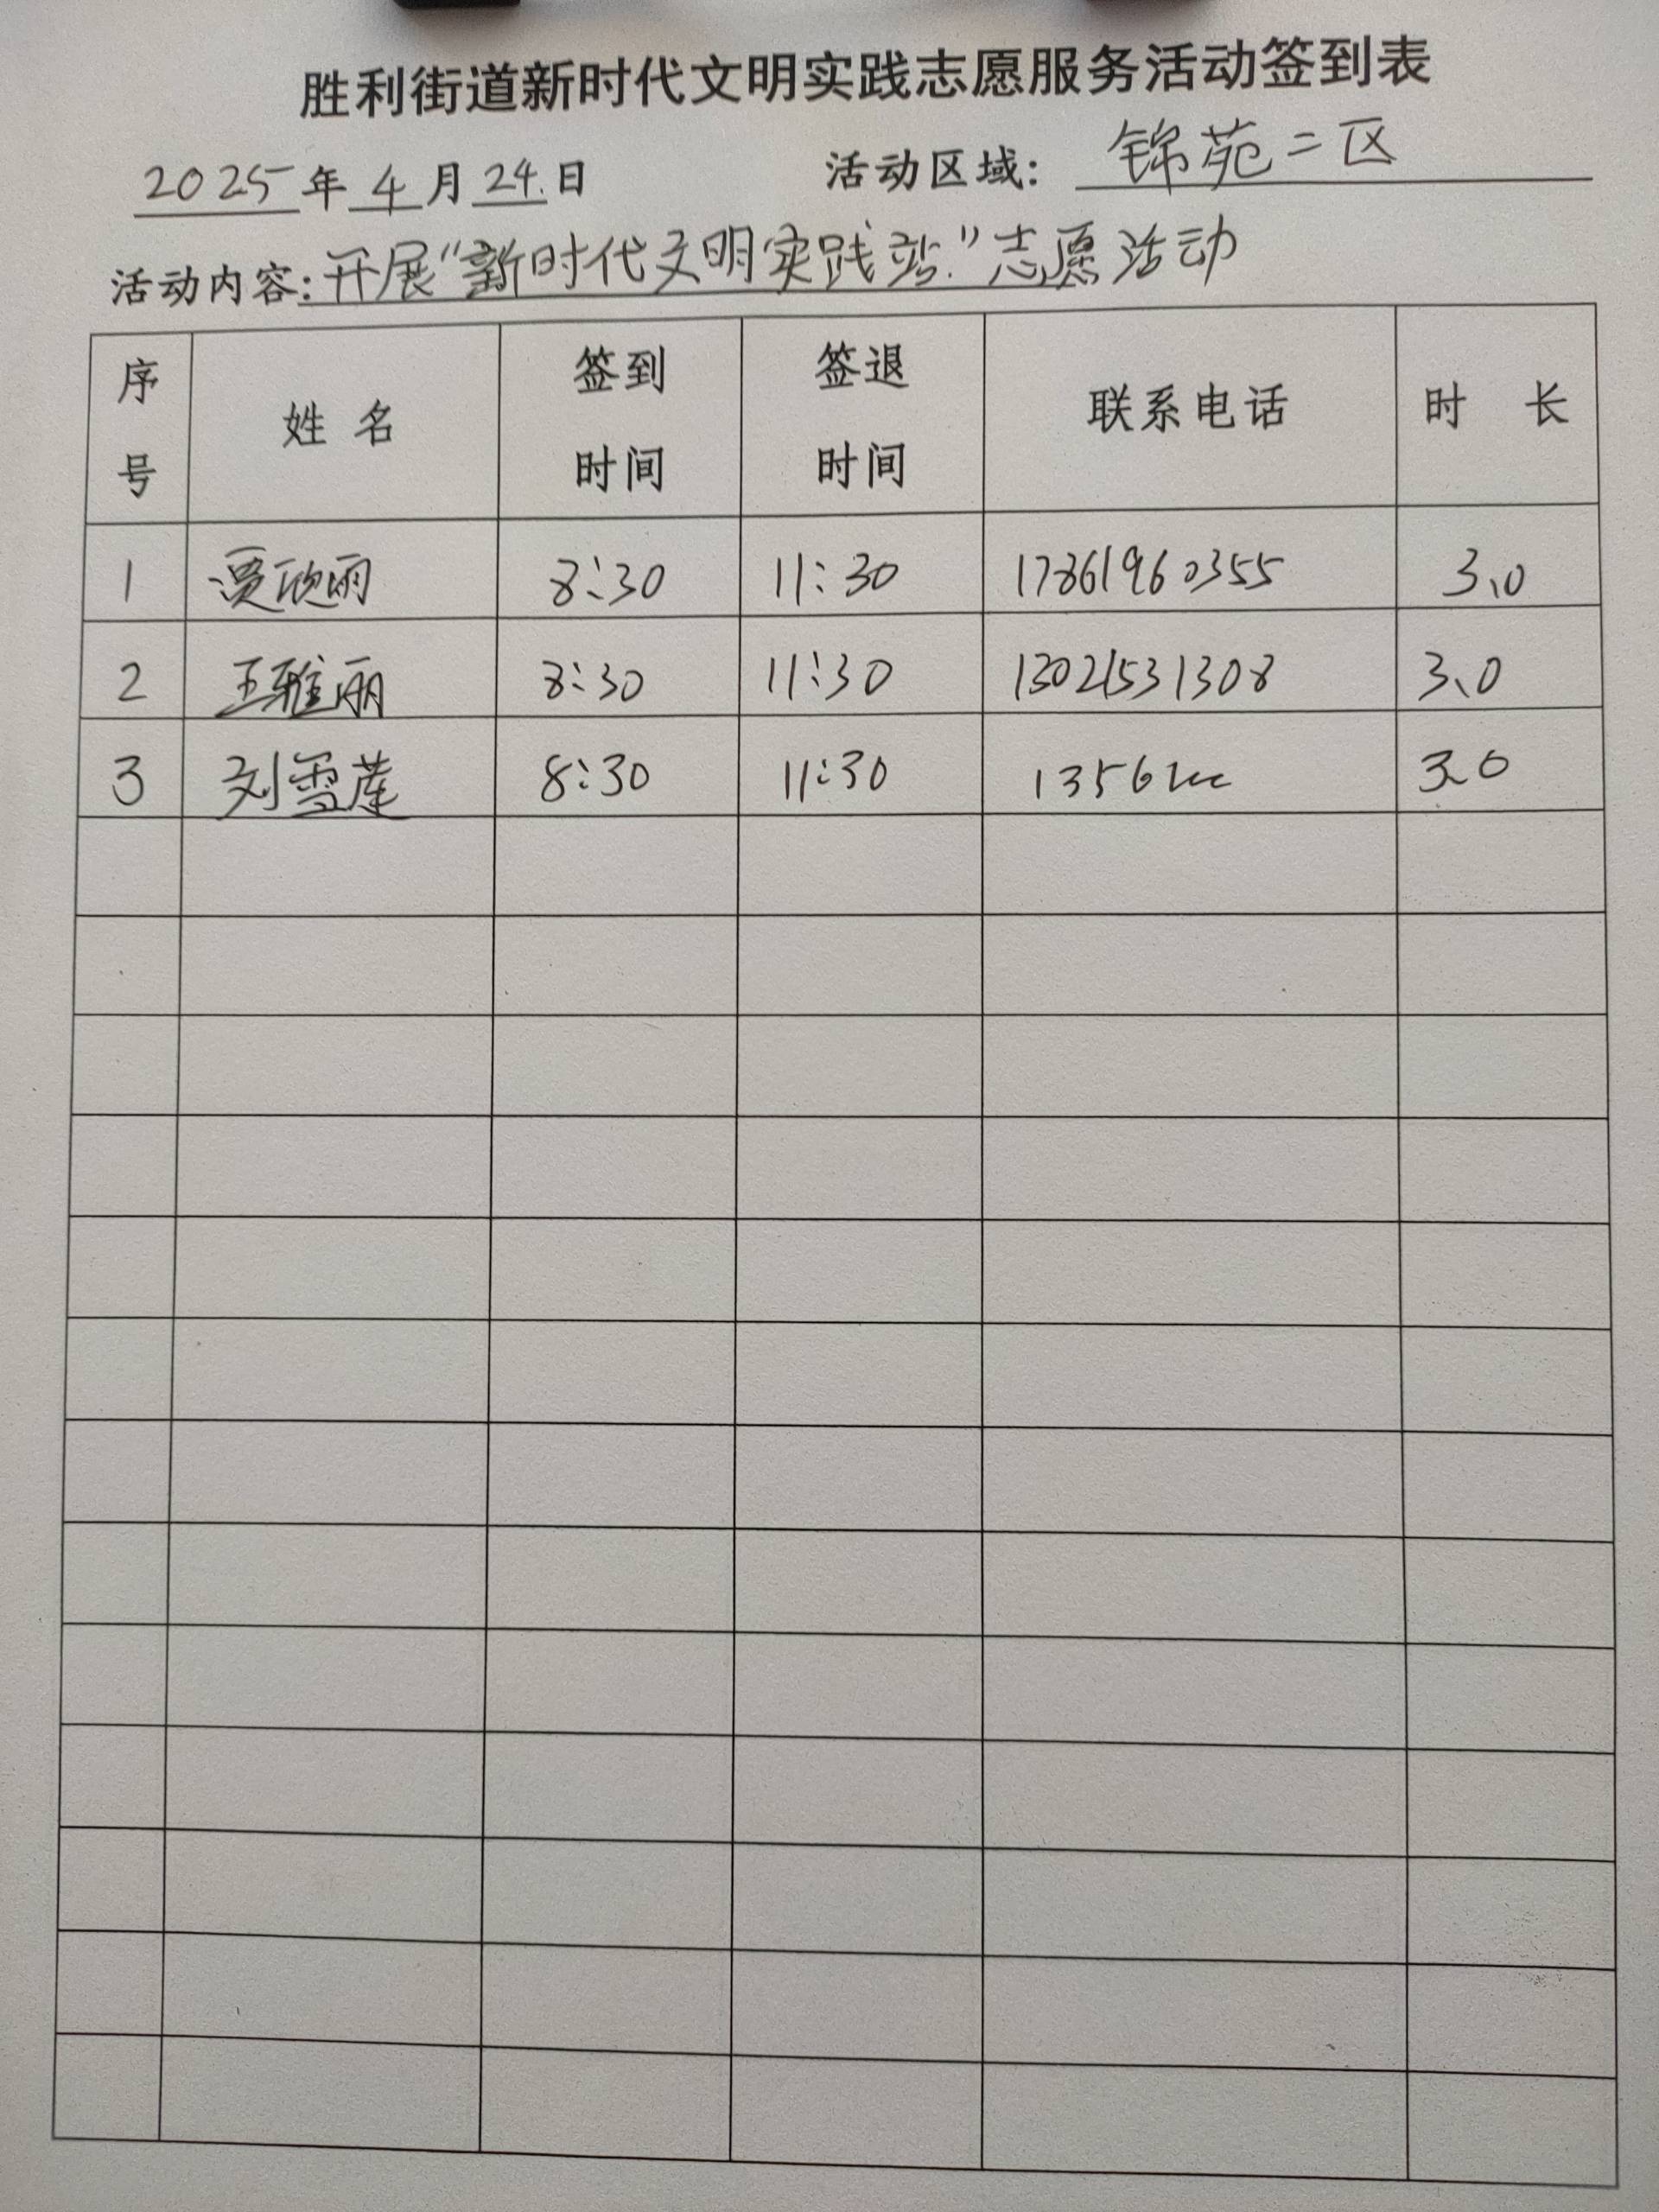 胜利街道新时代文明实践志愿服务活动签到表
2025年4月24.日 活动区域：锦苑二区
活动内容：开展“新时代文明实践站.”志愿活动
序号 姓名 签到时间 签退时间 联系电话 时长
1 贾欣丽 8:30 11:30 17861960355 3.0
2 王雅丽 8:30 11:30 13021531308 3.0
3 刘雪莲 8:30 11:30 13562 3.0